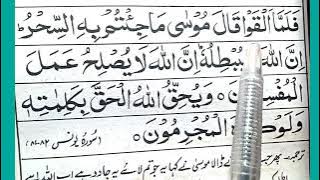 فَلَمَّاۤ اَلْقَوْا قَالَ مُوْسٰى مَا جِئْتُمْ بِهِ السِّحْرُ ؕ
اِنَّ اللّٰهَ سَيُبْطِلُهٗ اِنَّ اللّٰهَ لَا يُصْلِحُ عَمَلَ
الْمُفْسِدِيْنَ ○ وَيُحِقُّ اللّٰهُ الْحَقَّ بِكَلِمٰتِهٖ
وَلَوْ كَرِهَ الْمُجْرِمُوْنَ ○ (سورۂ یونس ۸۱-۸۲)
ترجمہ: پھر جب ڈالا موسیٰ نے کہا یہ جو تم لائے یہ جادو ہے اب اللہ اسے